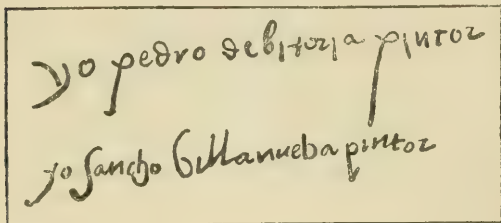 yo pedro debitoria pintor
yo sancho billanueba pintor